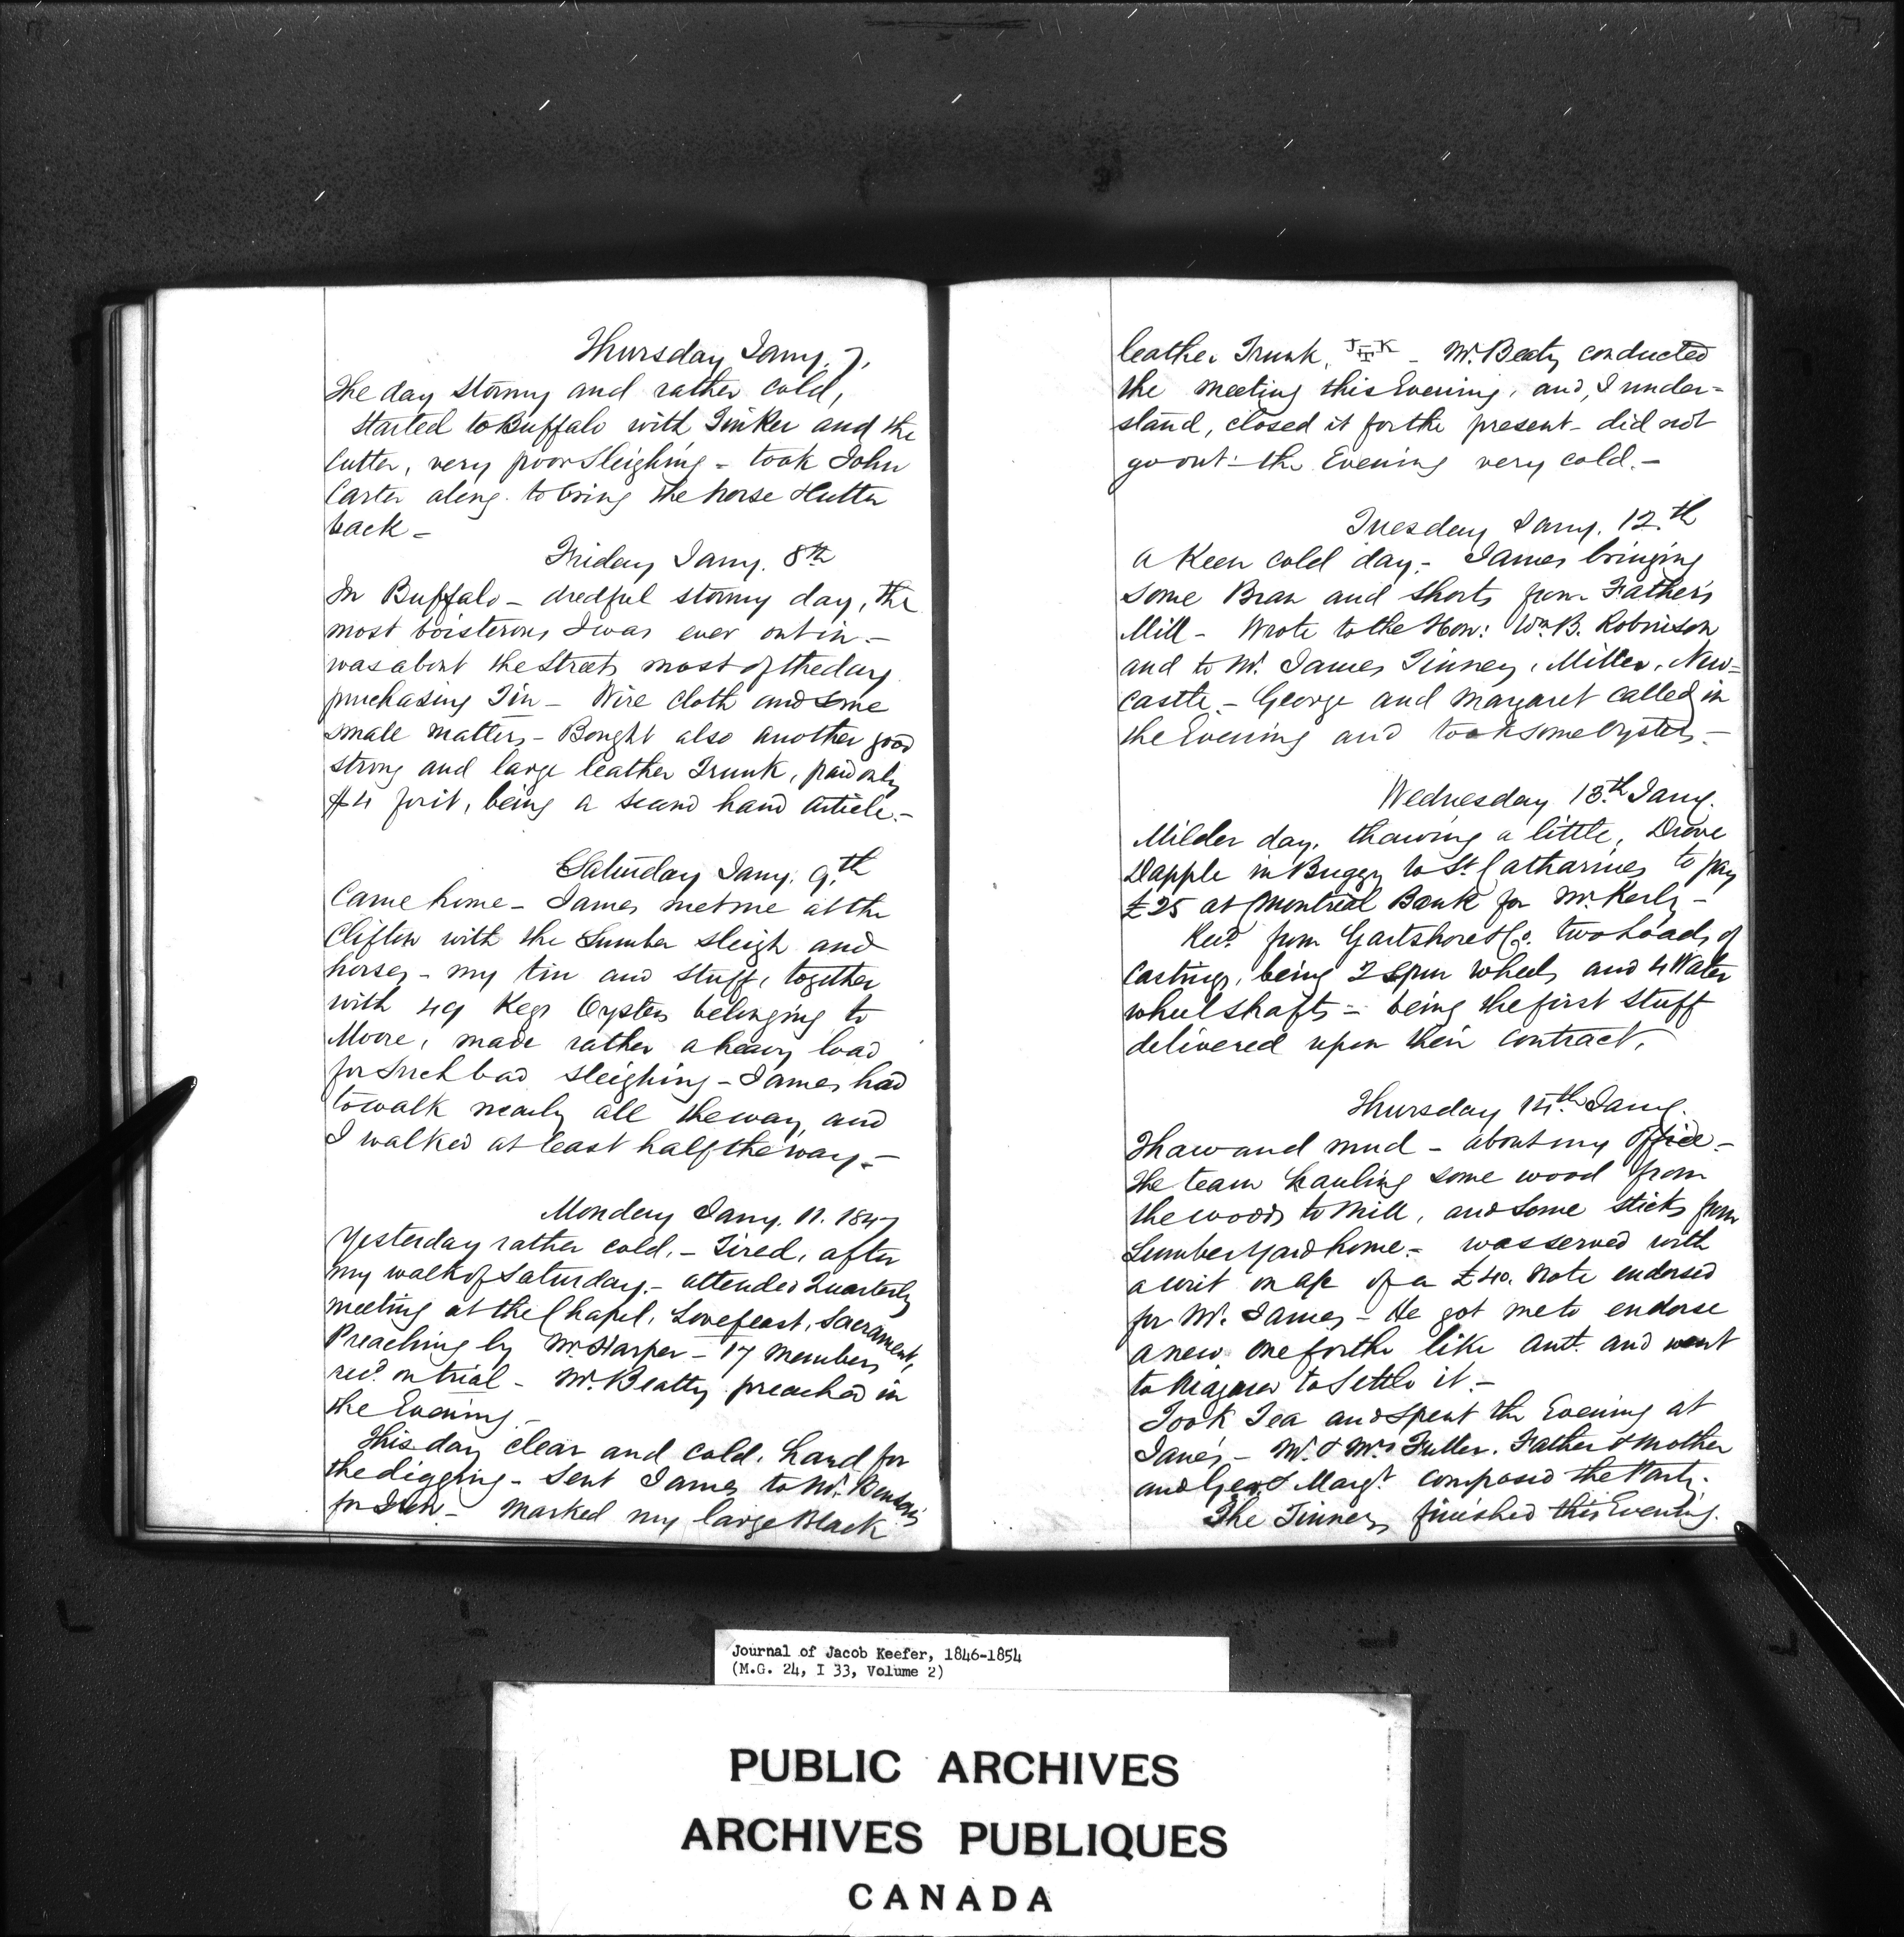 Thursday Jany. 7.
The day stormy and rather cold,
started to Buffalo with Tinker and the
Cutter, very poor Sleighing - took John
Carter along to bring the horse & Cutter
back -
Friday Jany. 8th
In Buffalo - dredful stormy day, the
most boisterous I was ever out in -
was about the Streets most of the day
purchasing Tin - Wire Cloth and some
small matters - Bought also another good
strong and large leather Trunk, paid only
$4 for it, being a second hand article -
Saturday Jany. 9th
Came home - James met me at the
Clifton with the Lumber Sleigh and
horses - my tin and stuff, together
with 49 Kegs Oysters belonging to
Moore, made rather a heavy load
for such bad sleighing - James had
to walk nearly all the way, and
I walked at least half the way -
Monday Jany. 11. 1847
Yesterday rather cold. - Tired, after
my walk of Saturday. - attended Quarterly
meeting at the Chapel, Lovefeast, Sacrament,
Preaching by Mr. Harper - 17 members
recd. on trial - Mr. Beatty preached in
the Evening -
This day clear and cold, hard for
the digging - Sent James to Mr. Benson's
for - Marked my large Black
leather Trunk, J T K - Mr. Beaty conducted
the meeting this Evening, and, I under=
stand, closed it for the present - did not
go out - the Evening very cold. -
Tuesday Jany. 12th
a Keen cold day - James bringing
some Bran and Shorts from Father's
Mill - Wrote to the Hon: Wm. B. Robinson
and to Mr. James Tinney, Miller, New=
castle - George and Margaret called in
the Evening and took some Oysters -
Wednesday 13th Jany.
Milder day, thawing a little, Drove
Dapple in Buggy to St. Catharines to pay
£25 at Montreal Bank for Mr. Kerly -
Recd. from Gartshore & Co. two Loads of
Castings, being 2 Spur wheels and 4 Water
wheel shafts - being the first Stuff
delivered upon their Contract.
Thursday 14th Jany.
Thaw and mud - about my office -
The team hauling some wood from
the woods to Mill, and some sticks from
Lumber Yard home - was served with
a writ on a/c of a £40. note endorsed
for Mr. James - He got me to endorse
a new one for the like amt. and went
to Niagara to Settle it. -
Took Tea and spent the Evening at
Jane's - Mr. & Mrs Fuller. Father & Mother
and Geo. & Margt. composed the Party.
The Tinners finished this Evening.
Journal of Jacob Keefer, 1846-1854
(M.G. 24, I 33, Volume 2)
PUBLIC ARCHIVES
ARCHIVES PUBLIQUES
CANADA